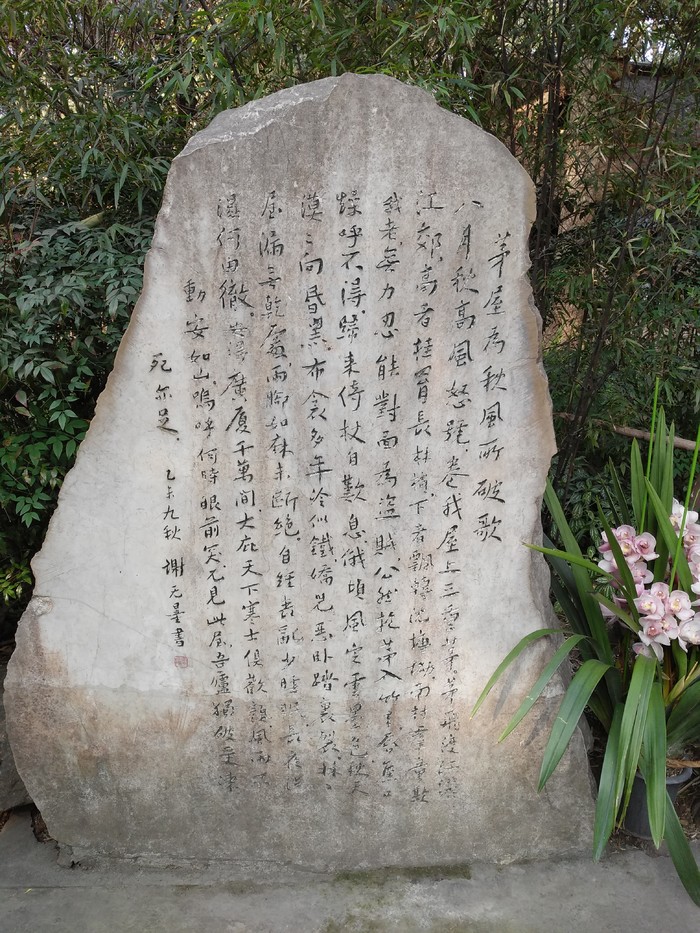 茅屋為秋風所破歌
八月秋高風怒號卷我屋上三重茅茅飛渡江灑
江郊高者挂罥長林梢下者飄轉沉塘坳南村群童欺
我老無力忍能對面為盜賊公然抱茅入竹去唇焦口
燥呼不得歸來倚杖自歎息俄頃風定雲墨色秋天
漠〻向昏黑布衾多年冷似鐵嬌兒惡卧踏裏裂牀〻
屋漏無乾處雨腳如麻未斷絕自經喪亂少睡眠長夜沾
濕何由徹安得廣廈千萬間大庇天下寒士俱歡顏風雨不
動安如山嗚呼何時眼前突兀見此屋吾廬獨破受凍
死亦足
乙未九秋 謝无量書